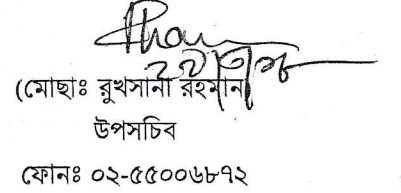 (মোছাঃ রুখসানা রহমান)
উপসচিব
ফোনঃ ০২-৫৫০০৬৮৭২